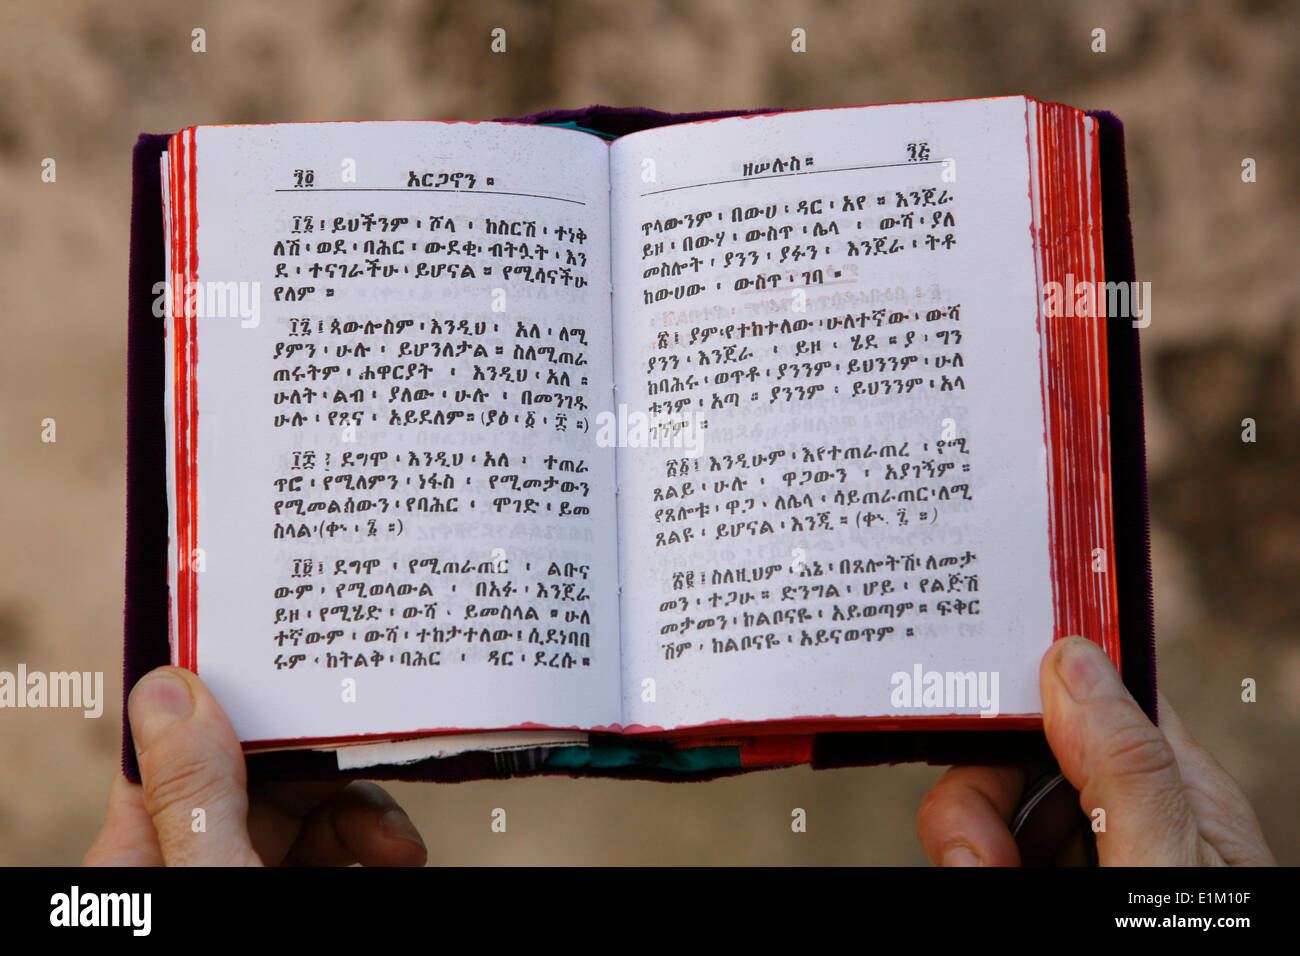 ፶፬ አርጋኖን ።
፲፮ ፤ ይህችንም ፡ ሾላ ፡ ከስርሽ ፡ ተነቅ
ለሽ ፡ ወደ ፡ ባሕር ፡ ውደቂ ፡ ብትሏት ፡ እን
ደ ፡ ተናገራችሁ ፡ ይሆናል ። የሚሳናችሁ
የለም ።
፲፯ ፤ ጳውሎስም ፡ እንዲህ ፡ አለ ፡ ለሚ
ያምን ፡ ሁሉ ፡ ይሆንለታል ። ስለሚጠራ
ጠሩትም ፡ ሐዋርያት ፡ እንዲህ ፡ አለ ።
ሁለት ፡ ልብ ፡ ያለው ፡ ሁሉ ፡ በመንገዱ
ሁሉ ፡ የጸና ፡ አይደለም ። (ያዕ ፡ ፩ ፡ ፰ ።)
፲፰ ፤ ደግሞ ፡ እንዲህ ፡ አለ ፡ ተጠራ
ጥሮ ፡ የሚለምን ፡ ነፋስ ፡ የሚመታውን
የሚመልሰውን ፡ የባሕር ፡ ሞገድ ፡ ይመ
ስላል ፡ (ቀኍ ፡ ፮ ።)
፲፱ ፤ ደግሞ ፡ የሚጠራጠር ፡ ልቡና
ውም ፡ የሚወላውል ፡ በአፉ ፡ እንጀራ
ይዞ ፡ የሚሄድ ፡ ውሻ ፡ ይመስላል ። ሁለ
ተኛውም ፡ ውሻ ፡ ተከታተለው ፤ ሲደነበበ
ሩም ፡ ከጥልቅ ፡ ባሕር ፡ ዳር ፡ ደረሱ ።
ዘሠሉስ ። ፶፭
ጥላውንም ፡ በውሀ ፡ ዳር ፡ አየ ። እንጀራ
ይዞ ፡ በውሃ ፡ ውስጥ ፡ ሌላ ፡ ውሻ ፡ ያለ
መስሎት ፡ ያንን ፡ ያፉን ፡ እንጀራ ፡ ትቶ
ከውሀው ፡ ውስጥ ፡ ገባ ።
፳ ፤ ያም ፡ የተከተለው ፡ ሁለተኛው ፡ ውሻ
ያንን ፡ እንጀራ ፡ ይዞ ፡ ሄደ ። ያ ፡ ግን
ከባሕሩ ፡ ወጥቶ ፡ ያንንም ፡ ይህንንም ፡ ሁለ
ቱንም ፡ አጣ ። ያንንም ፡ ይህንንም ፡ አላ
ገኝም ።
፳፩ ፤ እንዲሁም ፡ እየተጠራጠረ ፡ የሚ
ጸልይ ፡ ሁሉ ፡ ዋጋውን ፡ አያገኝም ።
የጸሎቱ ፡ ዋጋ ፡ ለሌላ ፡ ሳይጠራጠር ፡ ለሚ
ጸልዩ ፡ ይሆናል ፡ እንጂ ። (ቀኍ ፡ ፯ ።)
፳፪ ፤ ስለዚህም ፡ እኔ ፡ በጸሎትሽ ፡ ለመታ
መን ፡ ተጋሁ ። ድንግል ፡ ሆይ ፡ የልጅሽ
መታመን ፡ ከልቦናዬ ፡ አይወጣም ። ፍቅር
ሽም ፡ ከልቦናዬ ፡ አይናወጥም ።
alamy
www.alamy.com
E1M10F